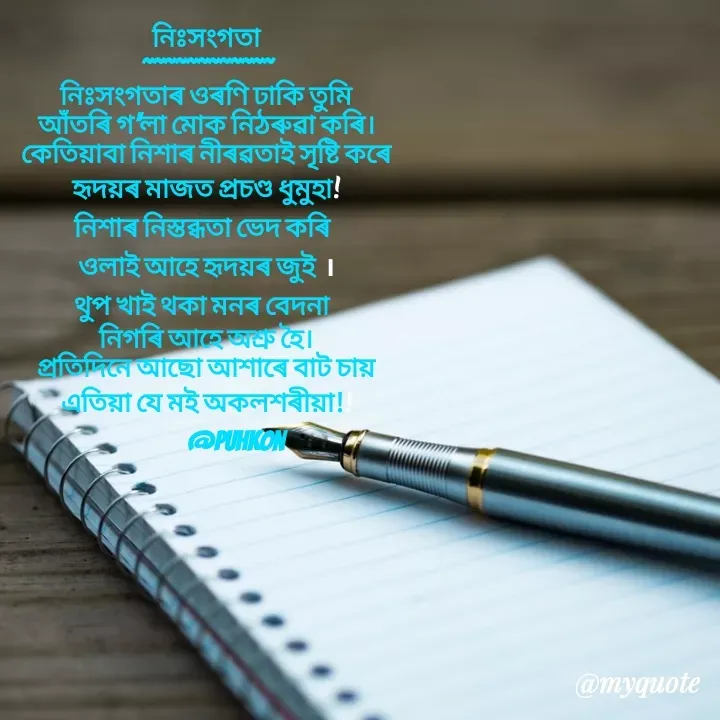 নিঃসংগতা
নিঃসংগতাৰ ওৰণি ঢাকি তুমি
আঁতৰি গ'লা মোক নিঠৰুৱা কৰি।
কেতিয়াবা নিশাৰ নীৰৱতাই সৃষ্টি কৰে
হৃদয়ৰ মাজত প্ৰচণ্ড ধুমুহা!
নিশাৰ নিস্তব্ধতা ভেদ কৰি
ওলাই আহে হৃদয়ৰ জুই ।
থুপ খাই থকা মনৰ বেদনা
নিগৰি আহে অশ্ৰু হৈ।
প্ৰতিদিনে আছো আশাৰে বাট চায়
এতিয়া যে মই অকলশৰীয়া!!
@PUHKON
@myquote